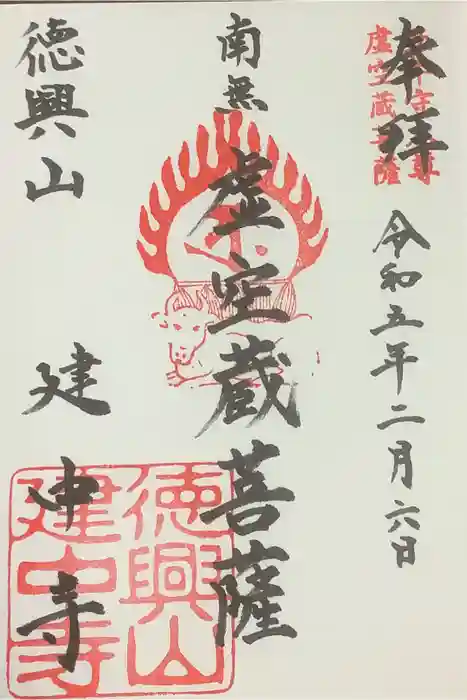 奉拝
守尊
虚空蔵菩薩
令和五年二月六日
南無
虚空蔵菩薩
徳興山
建中寺
徳興山
建中寺